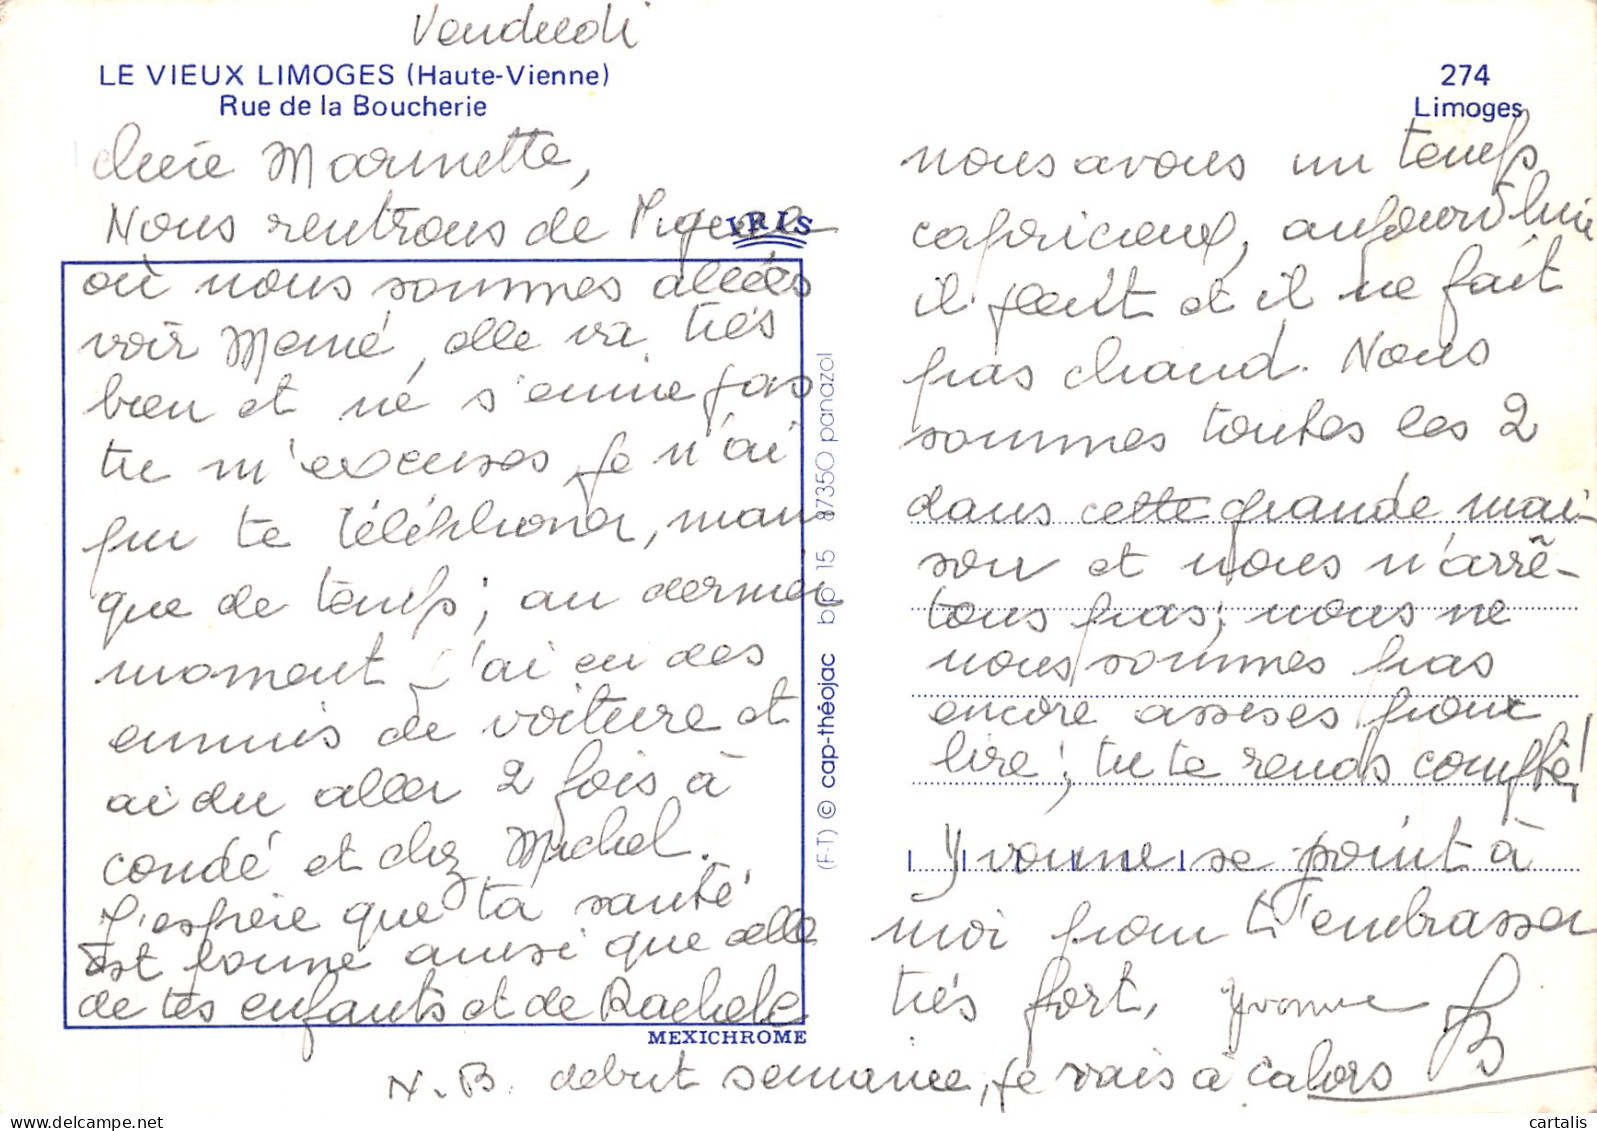 Vendredi
LE VIEUX LIMOGES (Haute-Vienne)
Rue de la Boucherie
274
Limoges
chérie Marinette,
Nous rentrons de
IRIS
où nous sommes allées
voir Mémé, elle va très
bien et ne s'ennuie pas
tu m'excuses, je n'ai
pu te téléphoner, man
que de temps ; au dernier
moment j'ai eu des
ennuis de voiture et
ai du aller 2 fois à
condé et chez Michel.
J'espère que ta santé
est bonne ainsi que celle
de tes enfants et de Rachele
MEXICHROME
(F-T) © cap-théojac bp 15 87350 panazol
nous avons un temps
capricieux, aujourd'hui
il pleut et il ne fait
pas chaud. Nous
sommes toutes les 2
dans cette grande mai-
son et nous n'arrê-
tons pas ; nous ne
nous sommes pas
encore assises pour
lire ; tu te rends compte !
Yvonne se joint à
moi pour t'embrasser
très fort, Yvonne
N.B. début semaine, je vais à cahors
cartalis